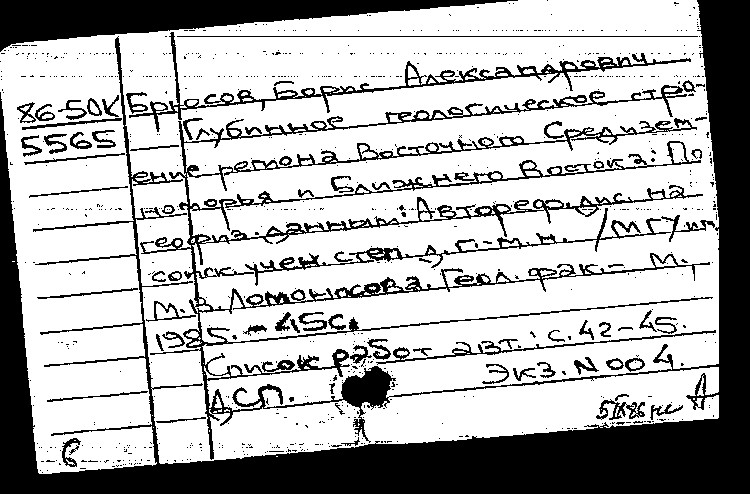 86-5ДК Брюсов, Борис Александрович.
5565 Глубинное геологическое стро-
ение региона Восточного Средизем-
номорья и Ближнего Востока: По
геофиз. данным: Автореф. дис. на
соиск. учен. степ. д. г.-м. н. /МГУ им.
М. В. Ломоносова. Геол. фак. – М.,
1985. – 45с.
Список работ авт.: с. 42–45.
Экз. N 004.
ДСП.